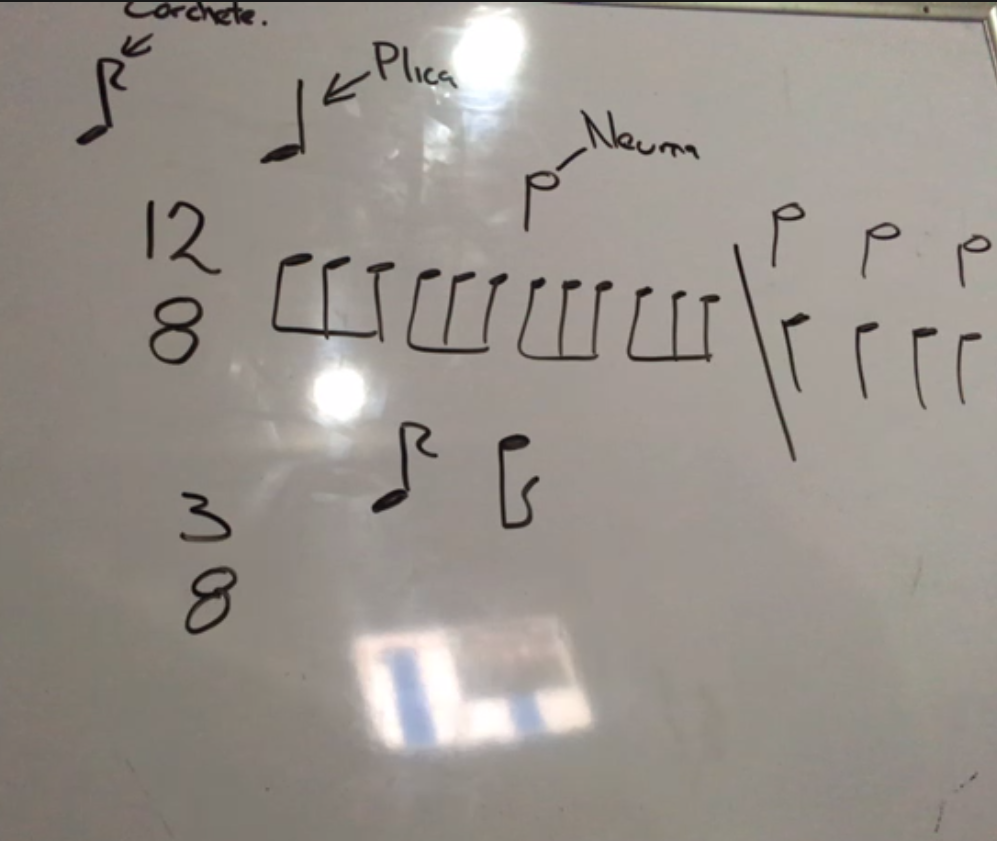 Corchete.
Plica
Neuma
12
8
3
8